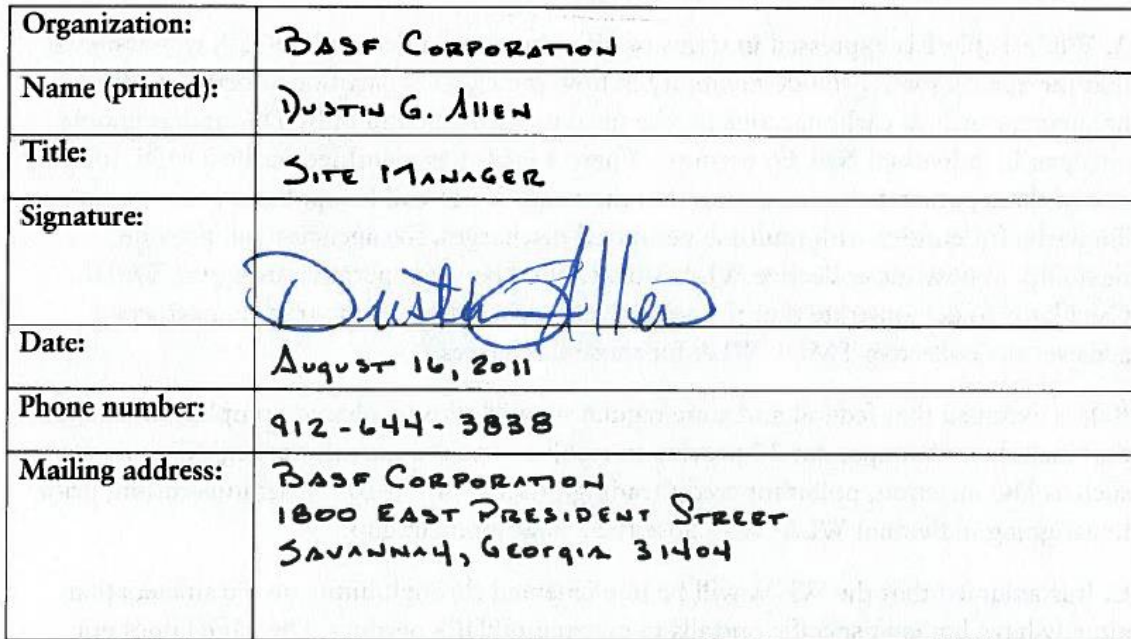 Organization: BASF CORPORATION
Name (printed): DUSTIN G. ALLEN
Title: SITE MANAGER
Signature: Dustin Allen
Date: AUGUST 16, 2011
Phone number: 912-644-3838
Mailing address: BASF CORPORATION
1800 EAST PRESIDENT STREET
SAVANNAH, GEORGIA 31404